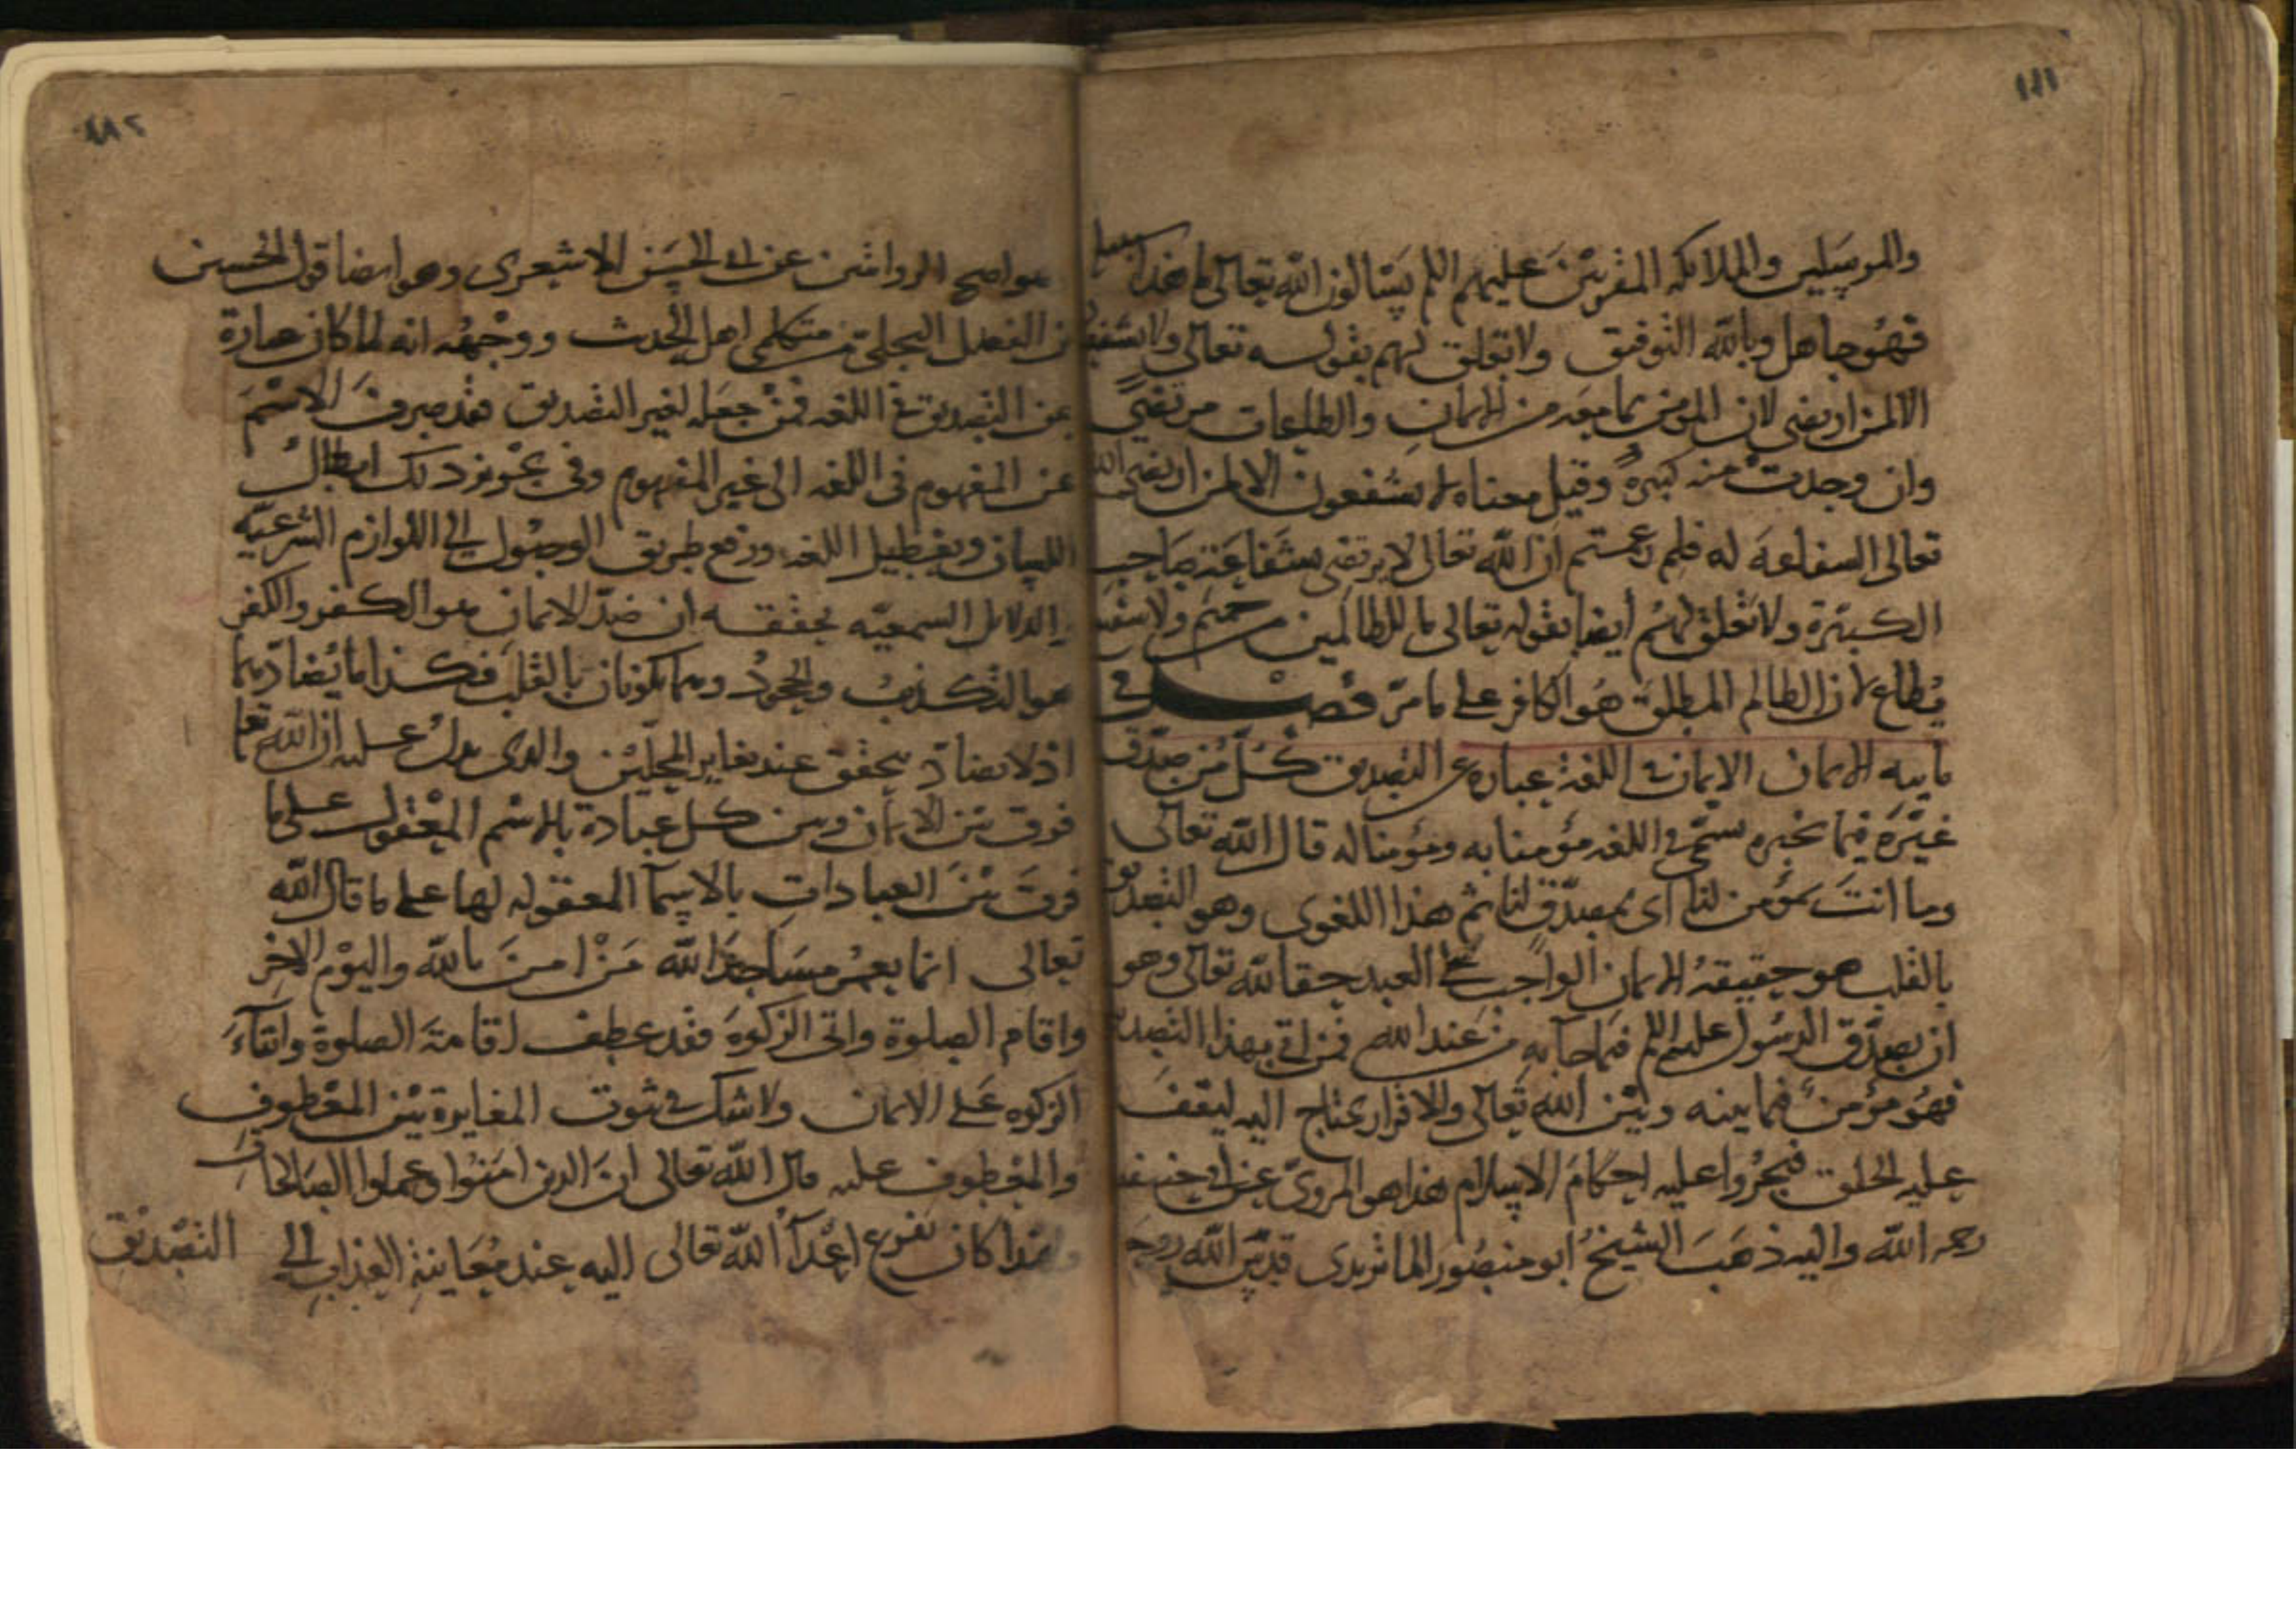 ١٨١
والمرسلين والملائكة المقربين عليهم السلم يسالون الله تعالى ما هذا سبيله
فهو جاهل وبالله التوفيق ولا تعلق لهم بقوله تعالى ولا يشفعون
الا لمن ارتضى لان المومن بما معه من الايمان والطاعات مرتضى
وان وجدت منه كبيرة وقيل معناه لا يشفعون الا لمن ارتضى الله
تعالى الشفاعة له فلم زعمتم ان الله تعالى لا يرتضى بشفاعة صاحب
الكبيرة ولا تعلق لهم ايضا بقوله تعالى ما للظالمين من حميم ولا شفيع
يطاع لان الظالم المطلق هو الكافر على ما مر فصل في
مايية الايمان الايمان في اللغة عبارة عن التصديق كل من صدق
غيره فيما يخبره يسمى في اللغة مؤمنا به ومؤمنا له قال الله تعالى
وما انت بمؤمن لنا اى بمصدق لنا ثم هذا اللغوى وهو التصديق
بالقلب هو حقيقة الايمان الواجب على العبد حقا لله تعالى وهو
ان يصدق الرسول عليه السلم فيما جاء به من عند الله فمن اتى بهذا التصديق
فهو مؤمن فيما بينه وبين الله تعالى والاقرار يحتاج اليه ليقف
عليه الخلق فيجروا عليه احكام الاسلام هذا هو المروى عن ابى حنيفة
رحمه الله واليه ذهب الشيخ ابو منصور الماتريدى قدس الله روحه
١٨٢
هو اصح الروايتين عن ابى الحسن الاشعرى وهو ايضا قول الحسين
بن الفضل البجلى من متكلمى اهل الحديث ووجهه انه لما كان عبارة
عن التصديق فى اللغة فمن جعله لغير التصديق فقد صرف الاسم
عن المفهوم فى اللغة الى غير المفهوم وفى تجويز ذلك ابطال
اللسان وتعطيل اللغة ورفع طريق الوصول الى اللوازم الشرعية
والدلايل السمعيه يحققه ان ضد الايمان هو الكفر والكفر
هو التكذيب والجحود وهما يكونان بالقلب فكذا ما يضادهما
اذ لا تضاد يتحقق عند تغاير المحلين والذى يدل عليه ان الله تعا
فرق بين الايمان وبين كل عبادة بالاسم المعقول على ما
فرق بين العبادات بالاسماء المعقوله لها على ما قال الله
تعالى انما يعمر مساجد الله من امن بالله واليوم الاخر
واقام الصلوة واتى الزكوة فقد عطف اقامة الصلوة وايتاء
الزكوة على الايمان ولا شك فى ثبوت المغايرة بين المعطوف
والمعطوف عليه قال الله تعالى ان الذين امنوا وعملوا الصالحات
ولهذا كان تفزع اعداء الله تعالى اليه عند معاينة العذاب الى
التصديق